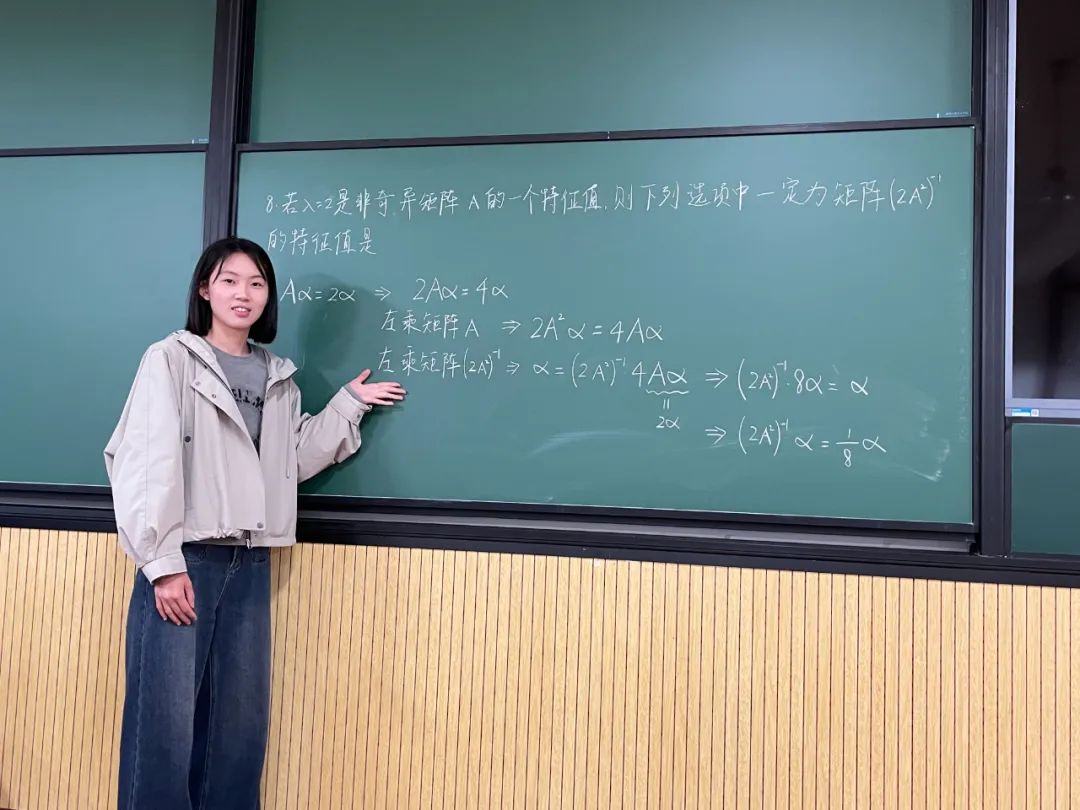 8.若λ=2是非奇异矩阵A的一个特征值,则下列选项中一定为矩阵(2A²)⁻¹
的特征值是
Aα=2α ⇒ 2Aα=4α
左乘矩阵A ⇒ 2A²α=4Aα
左乘矩阵(2A²)⁻¹ ⇒ α=(2A²)⁻¹4Aα ⇒ (2A²)⁻¹·8α=α
=
2α
⇒ (2A²)⁻¹α=1/8α